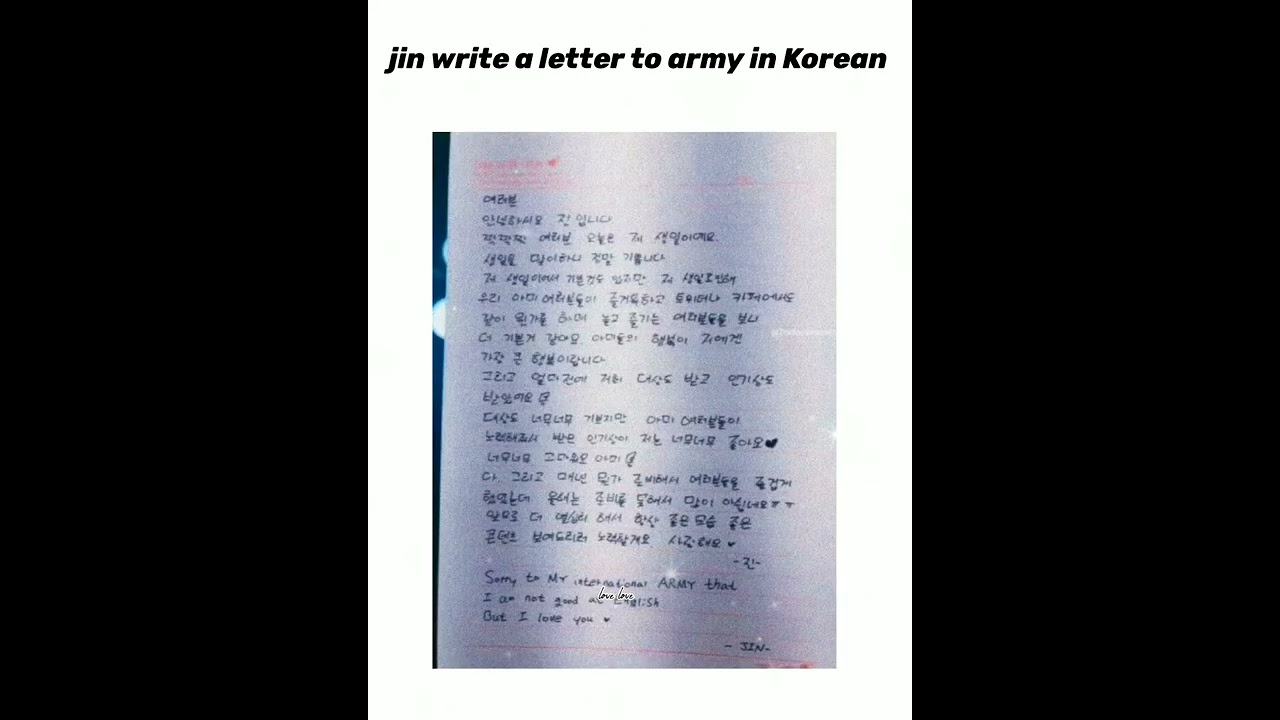 jin write a letter to army in Korean
여러분
안녕하세요 진입니다
짝짝짝 여러분 오늘은 저 생일이에요.
생일을 맞이하니 정말 기쁩니다
저 생일이여서 기쁜것도 있지만 저 생일로인해
우리 아미 여러분들이 즐거워하고 트위터나 카페에서도
같이 뭔가를 하며 놀고 즐기는 여러분들을 보니
더 기쁜거 같아요. 아미들의 행복이 저에겐
가장 큰 행복이랍니다
그리고 얼마전에 저희 대상도 받고 인기상도
받았어요
대상도 너무너무 기쁘지만 아미 여러분들이
노력해줘서 받은 인기상이 저는 너무너무 좋아요♥
너무너무 고마워요 아미
다. 그리고 매년 뭔가 준비해서 여러분들을 즐겁게
했었는데 올해는 준비를 못해서 많이 아쉽네요ㅠㅠ
앞으로 더 열심히 해서 항상 좋은모습 좋은
콘텐츠 보여드리려 노력할게요. 사랑해요 ♥
-진-
Sorry to My international ARMY that
I am not good at English
love love
But I love you ♥
- JIN-